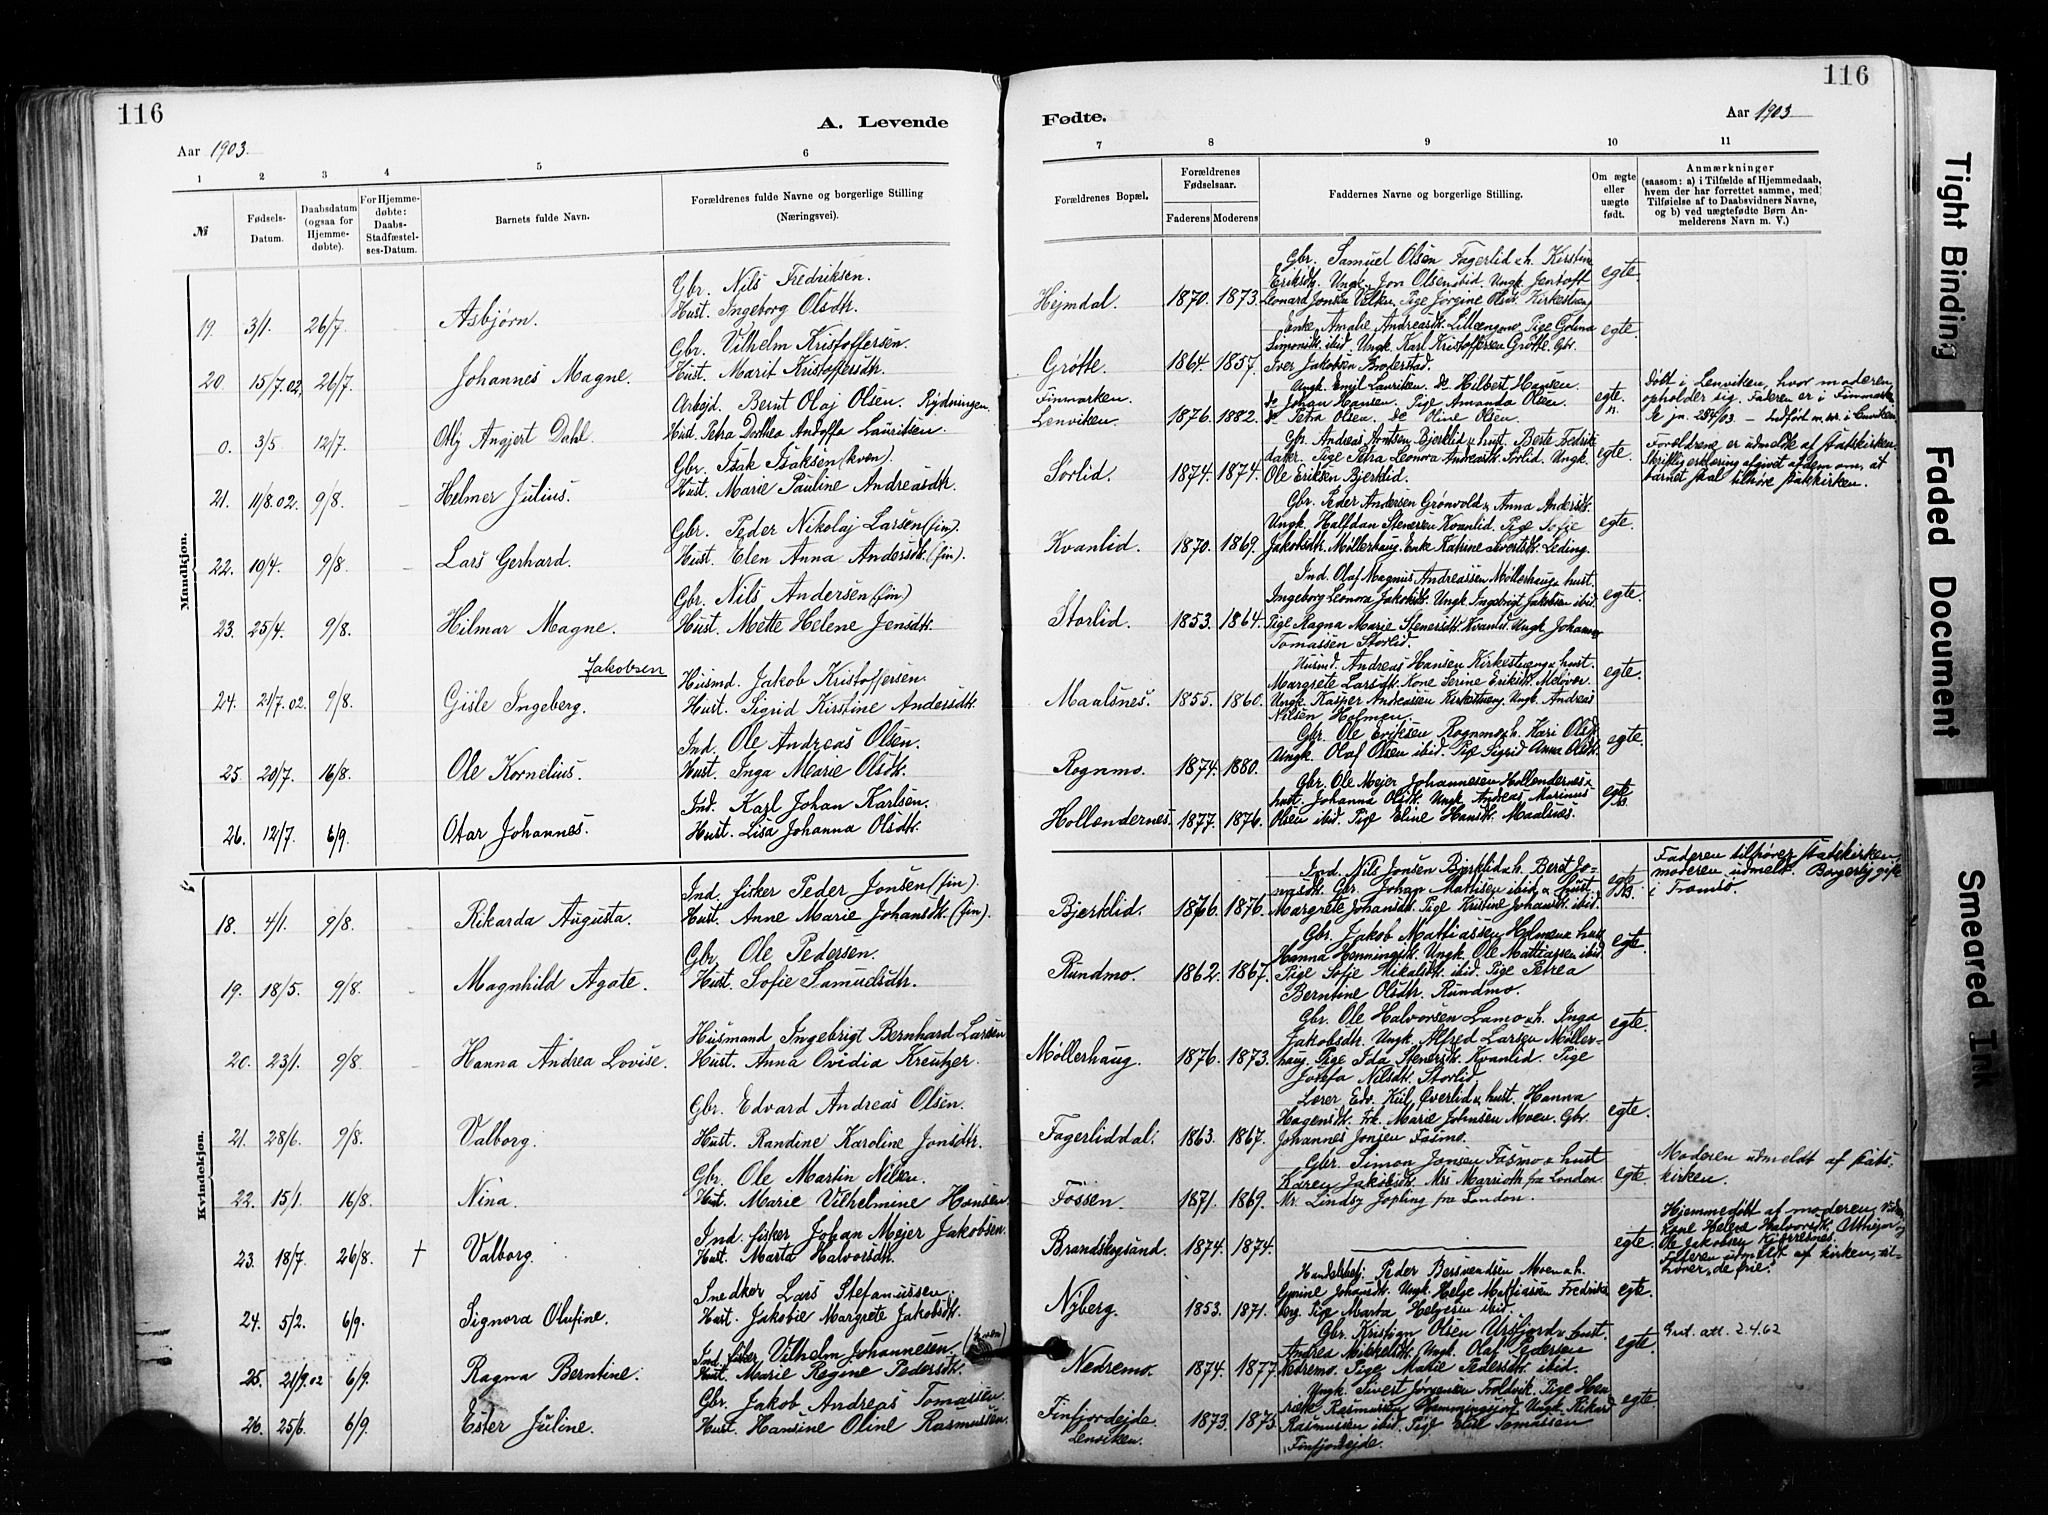 116
A. Levende
Aar 1903.
1 2 3 4 5 6
№
Fødsels-Datum.
Daabsdatum (ogsaa for Hjemmedøbte).
For Hjemmedøbte: Daabs-Stadfæstelses-Datum.
Barnets fulde Navn.
Forældrenes fulde Navne og borgerlige Stilling (Næringsvei).
Mandkjøn.
Gbr. Nils Fredriksen.
19. 3/1. 26/7. Asbjørn. Hust. Ingeborg Olsdtr.
Gbr. Vilhelm Kristoffersen.
20. 15/7.02. 26/7. Johannes Magne. Hust. Marit Kristoffersdtr.
Arbejd. Bernt Olaj Olsen. Rydningen.
0. 3/5. 12/7. Olly Angjert Dahl. Hust. Petra Dorthea Lauritsen.
Gbr. Isak Isaksen (kven).
21. 11/8.02. 9/8. Helmer Julius. Hust. Marie Pauline Andreasdtr.
Gbr. Peder Nikolaj Larsen (fin).
22. 10/4. 9/8. Lars Gerhard. Hust. Elen Anna Andersdtr. (fin).
Gbr. Nils Andersen (fin)
23. 25/4. 9/8. Hilmar Magne. Hust. Mette Helene Jensdtr.
Jakobsen Husmd. Jakob Kristoffersen.
24. 21/7.02. 9/8. Gisle Ingeberg. Hust. Sigrid Kirstine Andersdtr.
Ind. Ole Andreas Olsen.
25. 20/7. 16/8. Ole Kornelius. Hust. Inga Marie Olsdtr.
Ind. Karl Johan Karlsen.
26. 12/7. 6/9. Otar Johannes. Hust. Lisa Johanna Olsdtr.
Kvindekjøn.
Ind. fisker Peder Jonsen (fin).
18. 4/1. 9/8. Rikarda Augusta. Hust. Anne Marie Johansdtr. (fin).
Gbr. Ole Pedersen.
19. 18/5. 9/8. Magnhild Agate. Hust. Sofie Samuelsdtr.
Husmand Ingebrigt Bernhard Larsen
20. 23/1. 9/8. Hanna Andrea Lovise. Hust. Anna Ovidia Kreutzer.
Gbr. Edvard Andreas Olsen.
21. 28/6. 9/8. Valborg. Hust. Randine Karoline Jonsdtr.
Gbr. Ole Martin Nilsen.
22. 15/1. 16/8. Nina. Hust. Marie Vilhelmine Hansen.
Ind. fisker Johan Mejer Jakobsen.
23. 18/7. 26/8. † Valborg. Hust. Marta Halvorsdtr.
Snedker Lars Stefanussen.
24. 5/2. 6/9. Signora Olufine. Hust. Jakobie Margrete Jakobsdtr.
Ind. fisker Vilhelm Johannesen. (kven)
25. 21/9.02 6/9. Ragna Berntine. Hust. Marie Regine Pedersdtr.
Gbr. Jakob Andreas Tomassen.
26. 25/6. 6/9. Ester Juline. Hust. Hansine Oline Rasmussen.
116
Fødte.
Aar 1903
7 8 9 10 11
Forældrenes Bopæl.
Forældrenes Fødselsaar.
Faderens Moderens
Faddernes Navne og borgerlige Stilling.
Om ægte eller uægte født.
Anmærkninger
(saasom: a) i Tilfælde af Hjemmedaab, hvem der har forrettet samme, med Tilføielse af to Daabsvidners Navne, og b) ved uægtefødte Børn Anmelderens Navn m. V.)
Gbr. Samuel Olsen Fagerlid & h. Kirstine
Eriksdtr. Ungk. Jon Olsen ibid. Ungk. Jentoft
Hejmdal. 1870. 1873. Leonard Jonsen Pige Jørgine Olsd. Kirkestuen. egte.
Enke Amalie Andreasdtr. Lillengmo. Pige Golina
Simonsdtr. ibid. Ungk. Karl Kristoffersen Grøtte. Gbr.
Grøtte. 1864. 1857. Iver Jakobsen egte.
Finmarken. Ungk. Emil Lauritsen. do Hilbert Hansen.
do Johan Hansen. Pige Amanda Olsen.
Lenviken. 1876. 1882. do Petra Olsen. do Oline Olsen. egte.
Døbt i Lenviken, hvor moderen
opholder sig. Faderen er i Finmarken
Gbr. Andreas Arntsen Bjerklid & hust. Berte Fredriks
datter. Pige Petra Leonora Andreasdtr. Sørlid. Ungk.
Sørlid. 1874. 1874. Ole Eriksen Bjerklid. egte.
Forældrene er udmeldt af statskirken.
Skriftlig erklæring afgivet af dem om, at
barnet skal tilhøre statskirken.
Gbr. Peder Andersen Grønvold & Anna Andersdtr.
Ungk. Halfdan Stenersen Kvanlid. Pige Sofie
Kvanlid. 1870. 1869. Jakobsdtr. Møllerhaug. Enke Katrine Sivertsdtr. Leding. egte.
Ind. Olaf Magnus Andreassen Møllerhaug & hust.
Ingeborg Leonora Jakobsdtr. Ungk. Ingebrigt Jakobsen ibid.
Storlid. 1853. 1864. Pige Ragna Marie Stenersdtr. Kvanlid. Ungk. Johannes
Tomassen Storlid. egte.
Husmd. Andreas Hansen Kirkestueng & hust.
Margrete Larsdtr. Kone Serine Eriksdtr. Melover.
Maalsnes. 1855. 1860. Ungk. Kasper Andreassen Kirkestueng. Ungk. Andreas
Nilsen Holmen. egte.
Gbr. Ole Eriksen Rognmo & h. Kari Olsd.
Rognmo. 1874. 1880. Ungk. Olaf Olsen ibid. Pige Sigrid Anna Olsdtr. egte.
Gbr. Ole Mejer Johannesen Hollendernes &
hust. Johanna Olsdtr. Ungk. Andreas Marinus
Hollendernes. 1877. 1876. Olsen ibid. Pige Eline Hansdtr. Maalsnes. egte
Ind. Nils Jonsen Bjerklid & h. Berit Jonasdtr. Gbr. Johan Mattisen ibid & hust.
Bjerklid. 1876. 1876. Margrete Johansdtr. Pige Kristine Johansdtr. ibid. egte
Faderen tilhører statskirken,
moderen udmeldt. Borgerlig gift
i Tromsø
Gbr. Jakob Mattiassen Holmen & hust
Hanna Henningsdtr. Ungk. Ole Mattiassen ibid
Rundmo. 1862. 1867. Pige Sofie Mikalsdtr. ibid. Pige Petrea
Berntine Olsdtr. Rundmo. egte.
Gbr. Ole Halvorsen Lamo & h. Inga
Jakobsdtr. Ungk. Alfred Larsen Møller-
Møllerhaug. 1876. 1873. haug. Pige Ida Stenersdtr. Kvanlid. Pige
Josefa Nilsdtr. Storlid. egte.
Lærer Edv. Kiil, Øverlid & hust. Hanna
Hagensdtr. Frk. Marie Johnsen Moen. Gbr.
Fagerliddal. 1863. 1867. Johannes Jonsen Fosmo. egte.
Gbr. Simon Jonsen Fosmo & hust
Karen Jakobsdtr. Mrs Marrioth fra London.
Fossen. 1871. 1869. Mr. Lindsy Jopling fra London. egte.
Moderen udmeldt af stats-
kirken.
Brandskogsand. 1874. 1874. egte.
Hjemmedøbt af moderen, vidner
kone Helene Halvorsdtr. og
Ole Jakobsen
udmeldt af kirken, til-
hører „de frie."
Handelsbetj. Peder Bersvendsen Moen & h.
Gurine Johansdtr. Ungk. Helge Mattiassen Fredriks
Nyberg. 1853. 1871. berg. Pige Marta Helgesen ibid. egte.
Gbr. Kristian Olsen Ursfjord & hust.
Andrea Mikkelsdtr. Ungk. Olaf Pedersen
Nedremo. 1874. 1877. Nedremo. Pige Marie Pedersdtr. ibid. egte.
Grat. att. 2.4.62
Ungk. Sivert Jørgensen Troldvik. Pige Hen
rikke Rasmussen Hemmingsjord. Ungk. Rikard
Finfjordejde. 1873. 1873. Rasmussen ibid. Pige Elise Tomassen
Lenviken. Finfjordejde. egte.
Tight Binding
Faded Document
Smeared Ink